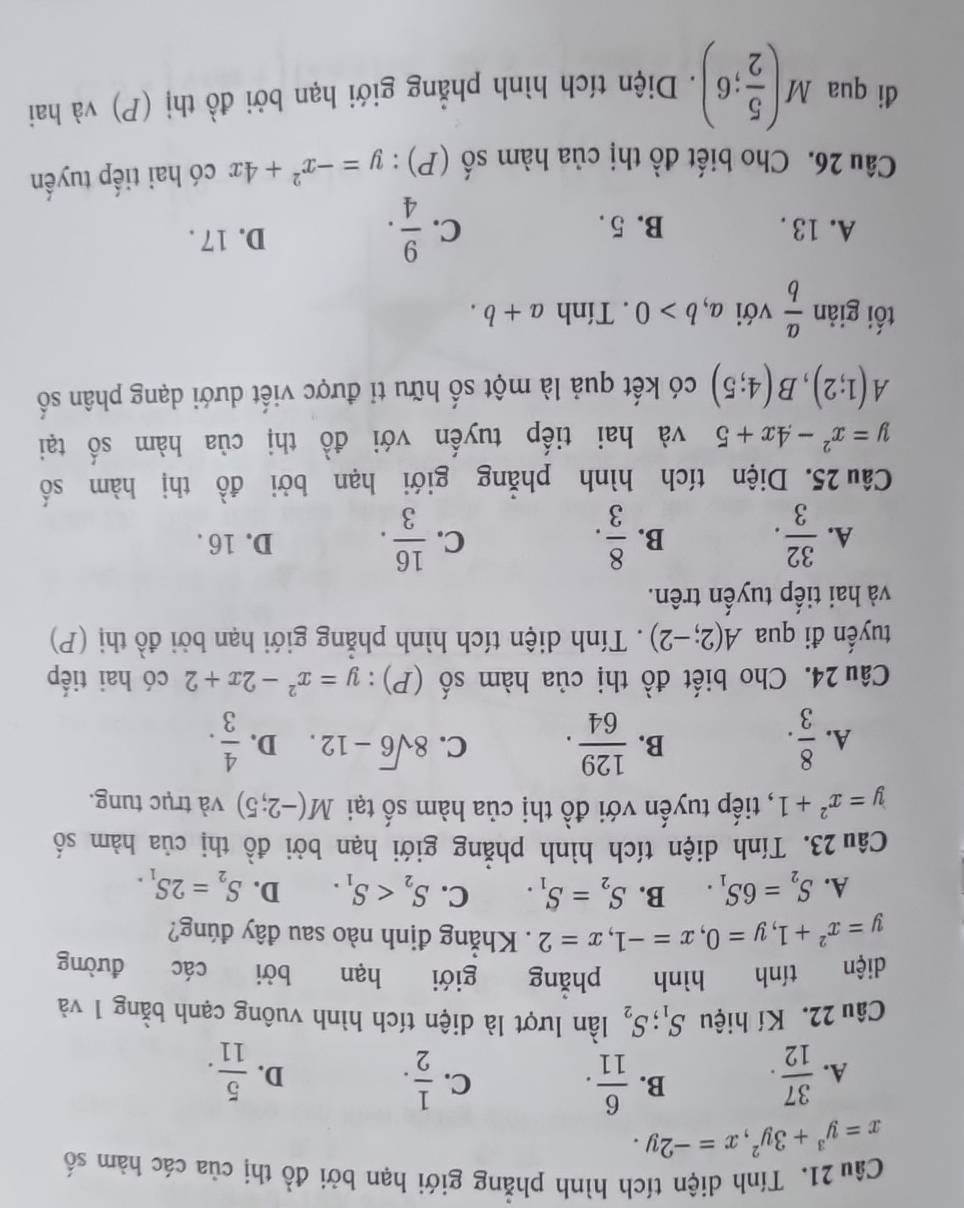 Câu 21. Tính diện tích hình phẳng giới hạn bởi đồ thị của các hàm số
x = y³ + 3y², x = −2y.
A. 37/12. B. 6/11. C. 1/2. D. 5/11.
Câu 22. Kí hiệu S₁; S₂ lần lượt là diện tích hình vuông cạnh bằng 1 và
diện tính hình phẳng giới hạn bởi các đường
y = x² + 1, y = 0, x = −1, x = 2. Khẳng định nào sau đây đúng?
A. S₂ = 6S₁. B. S₂ = S₁. C. S₂ < S₁. D. S₂ = 2S₁.
Câu 23. Tính diện tích hình phẳng giới hạn bởi đồ thị của hàm số
y = x² + 1, tiếp tuyến với đồ thị của hàm số tại M(−2;5) và trục tung.
A. 8/3. B. 129/64. C. 8√6 − 12. D. 4/3.
Câu 24. Cho biết đồ thị của hàm số (P): y = x² − 2x + 2 có hai tiếp
tuyến đi qua A(2;−2). Tính diện tích hình phẳng giới hạn bởi đồ thị (P)
và hai tiếp tuyến trên.
A. 32/3. B. 8/3. C. 16/3. D. 16.
Câu 25. Diện tích hình phẳng giới hạn bởi đồ thị hàm số
y = x² − 4x + 5 và hai tiếp tuyến với đồ thị của hàm số tại
A(1;2), B(4;5) có kết quả là một số hữu tỉ được viết dưới dạng phân số
tối giản a/b với a, b > 0. Tính a + b.
A. 13. B. 5. C. 9/4. D. 17.
Câu 26. Cho biết đồ thị của hàm số (P): y = −x² + 4x có hai tiếp tuyến
đi qua M(5/2;6). Diện tích hình phẳng giới hạn bởi đồ thị (P) và hai